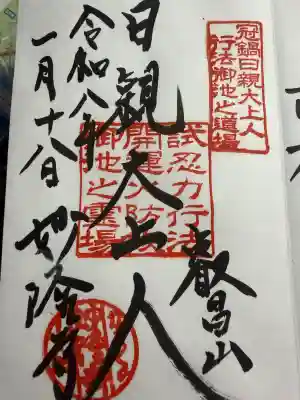 冠鍋日親大上人
行法御池之道場
叡昌山
試忍力行法
開運火防
御池之霊場
日親大上人
令和八年
一月十八日 妙隆寺